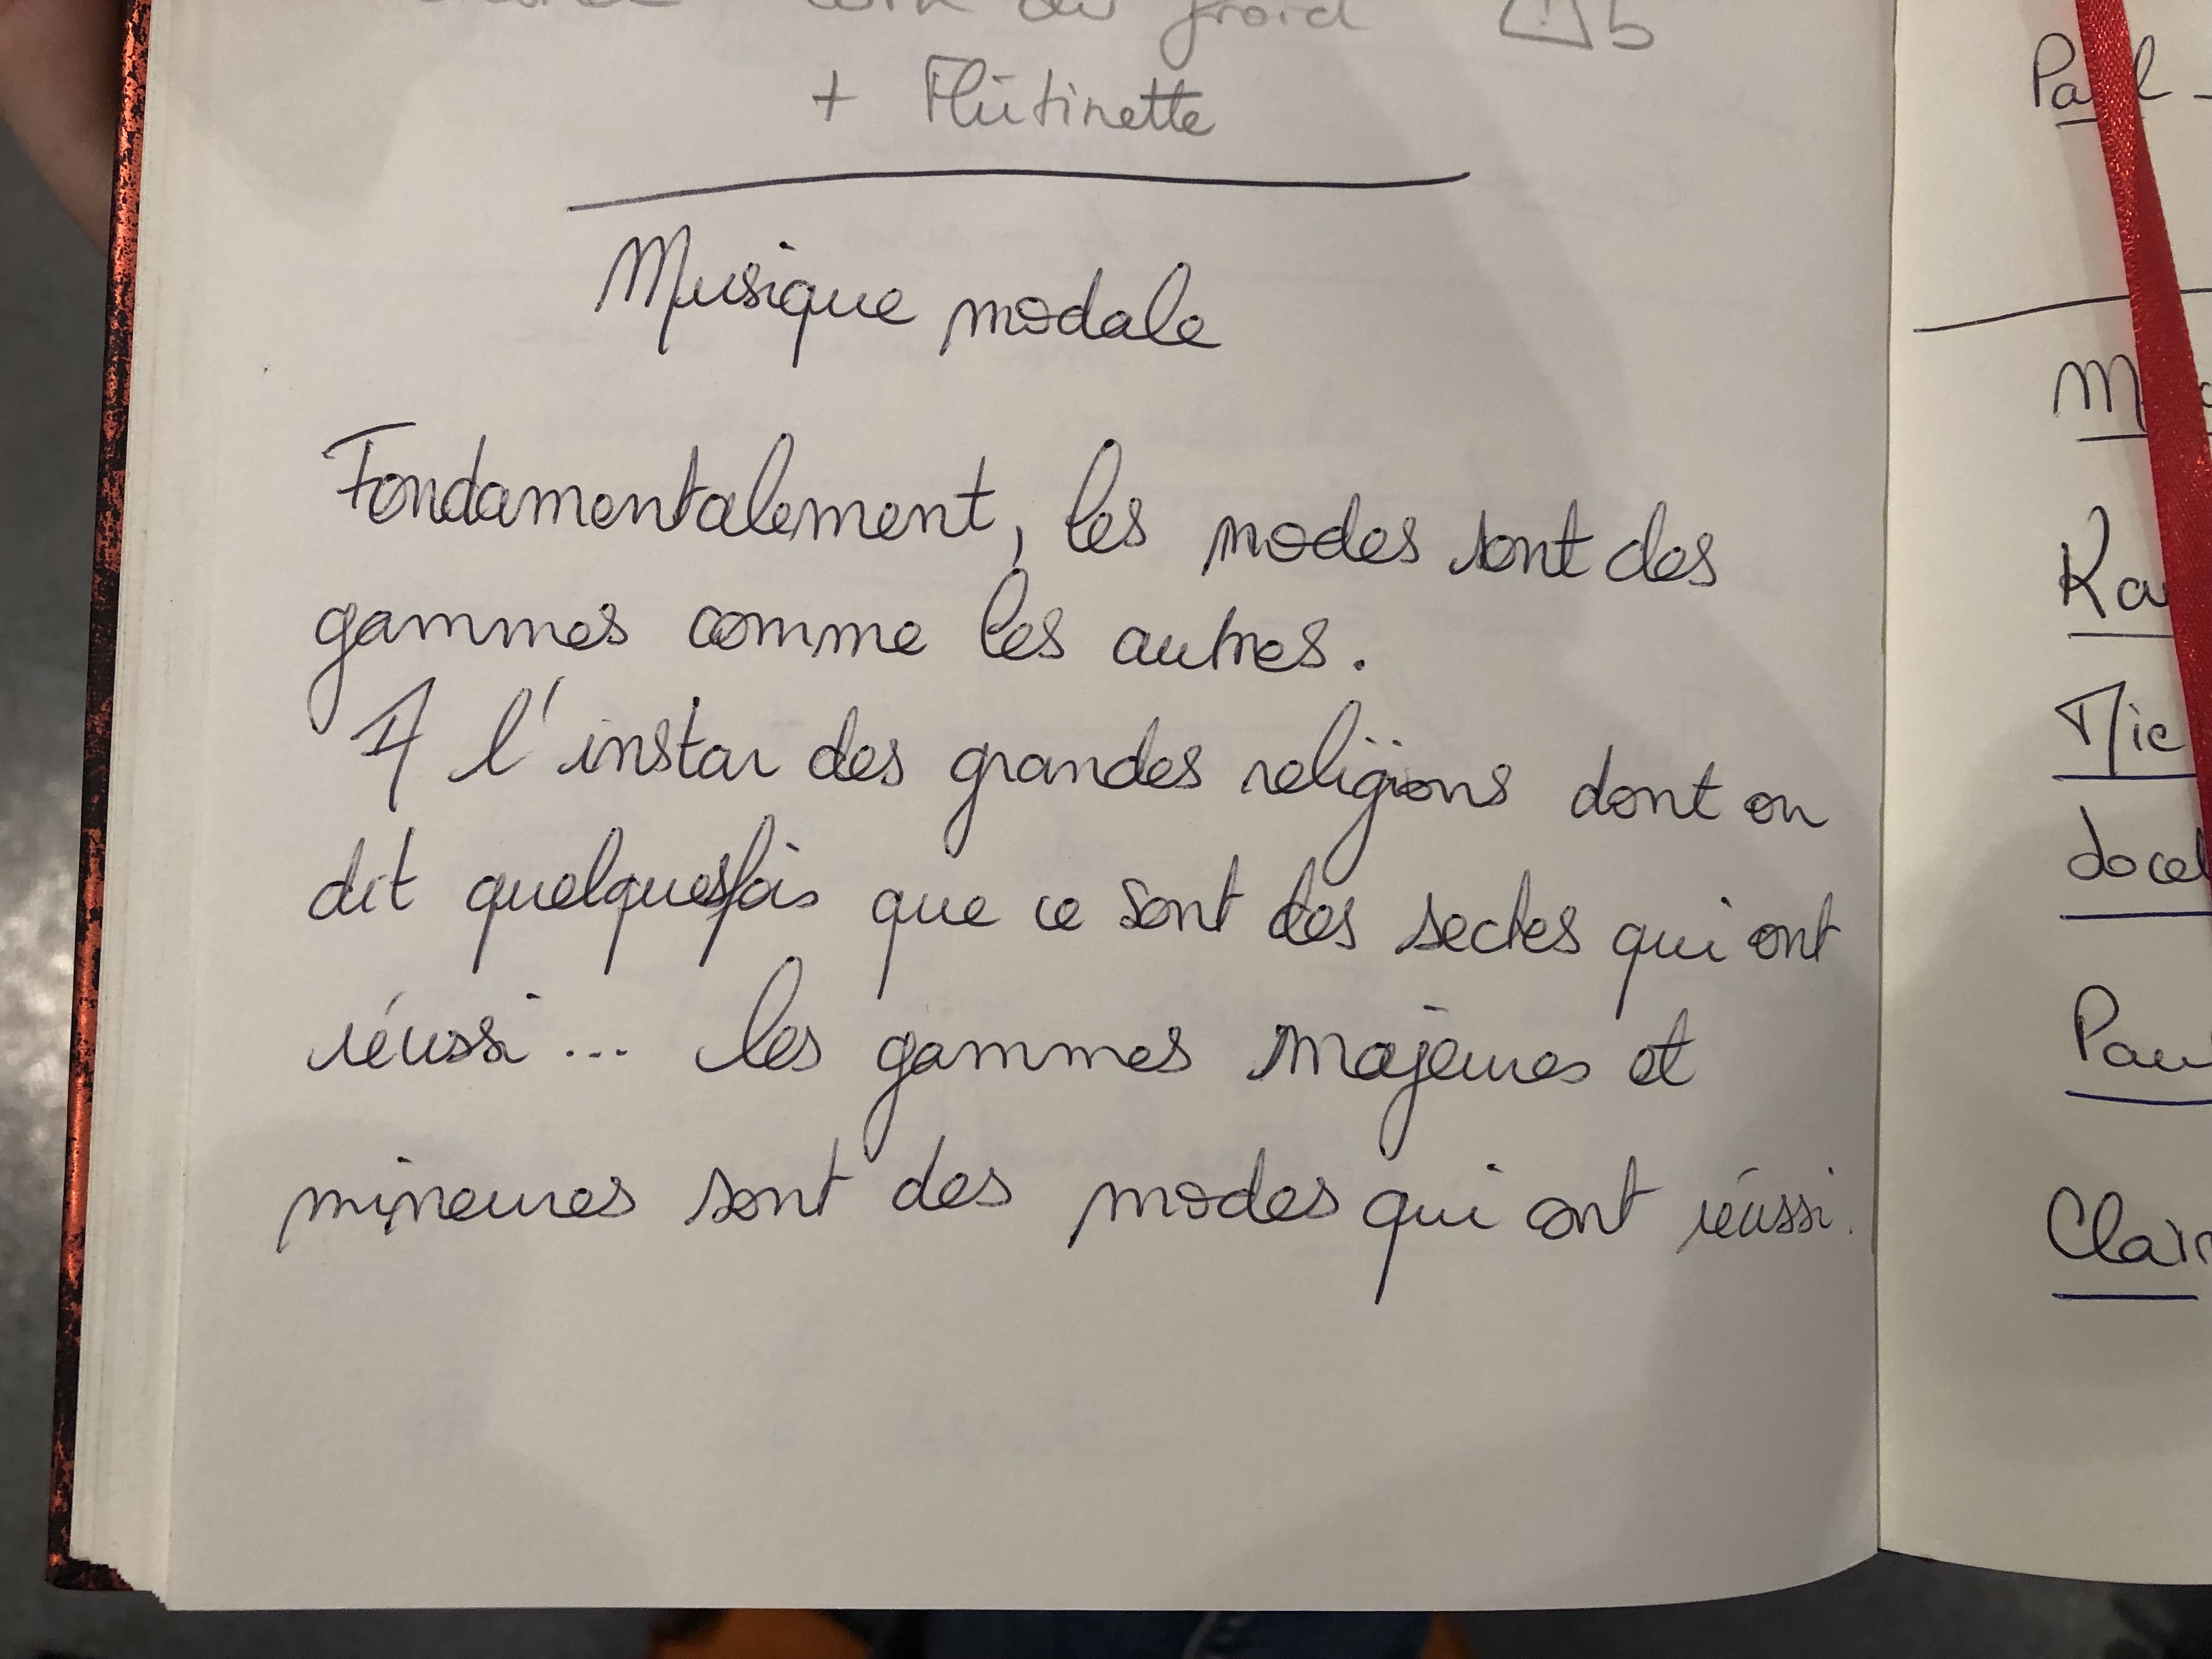 du froid
+ Flûtinette
Musique modale
Fondamentalement, les modes sont des
gammes comme les autres.
A l'instar des grandes religions dont on
dit quelquesfois que ce sont des sectes qui ont
réussi... les gammes majeures et
mineures sont des modes qui ont réussi.
Paul -
Ka
Mic
Joce
Paul
Clair